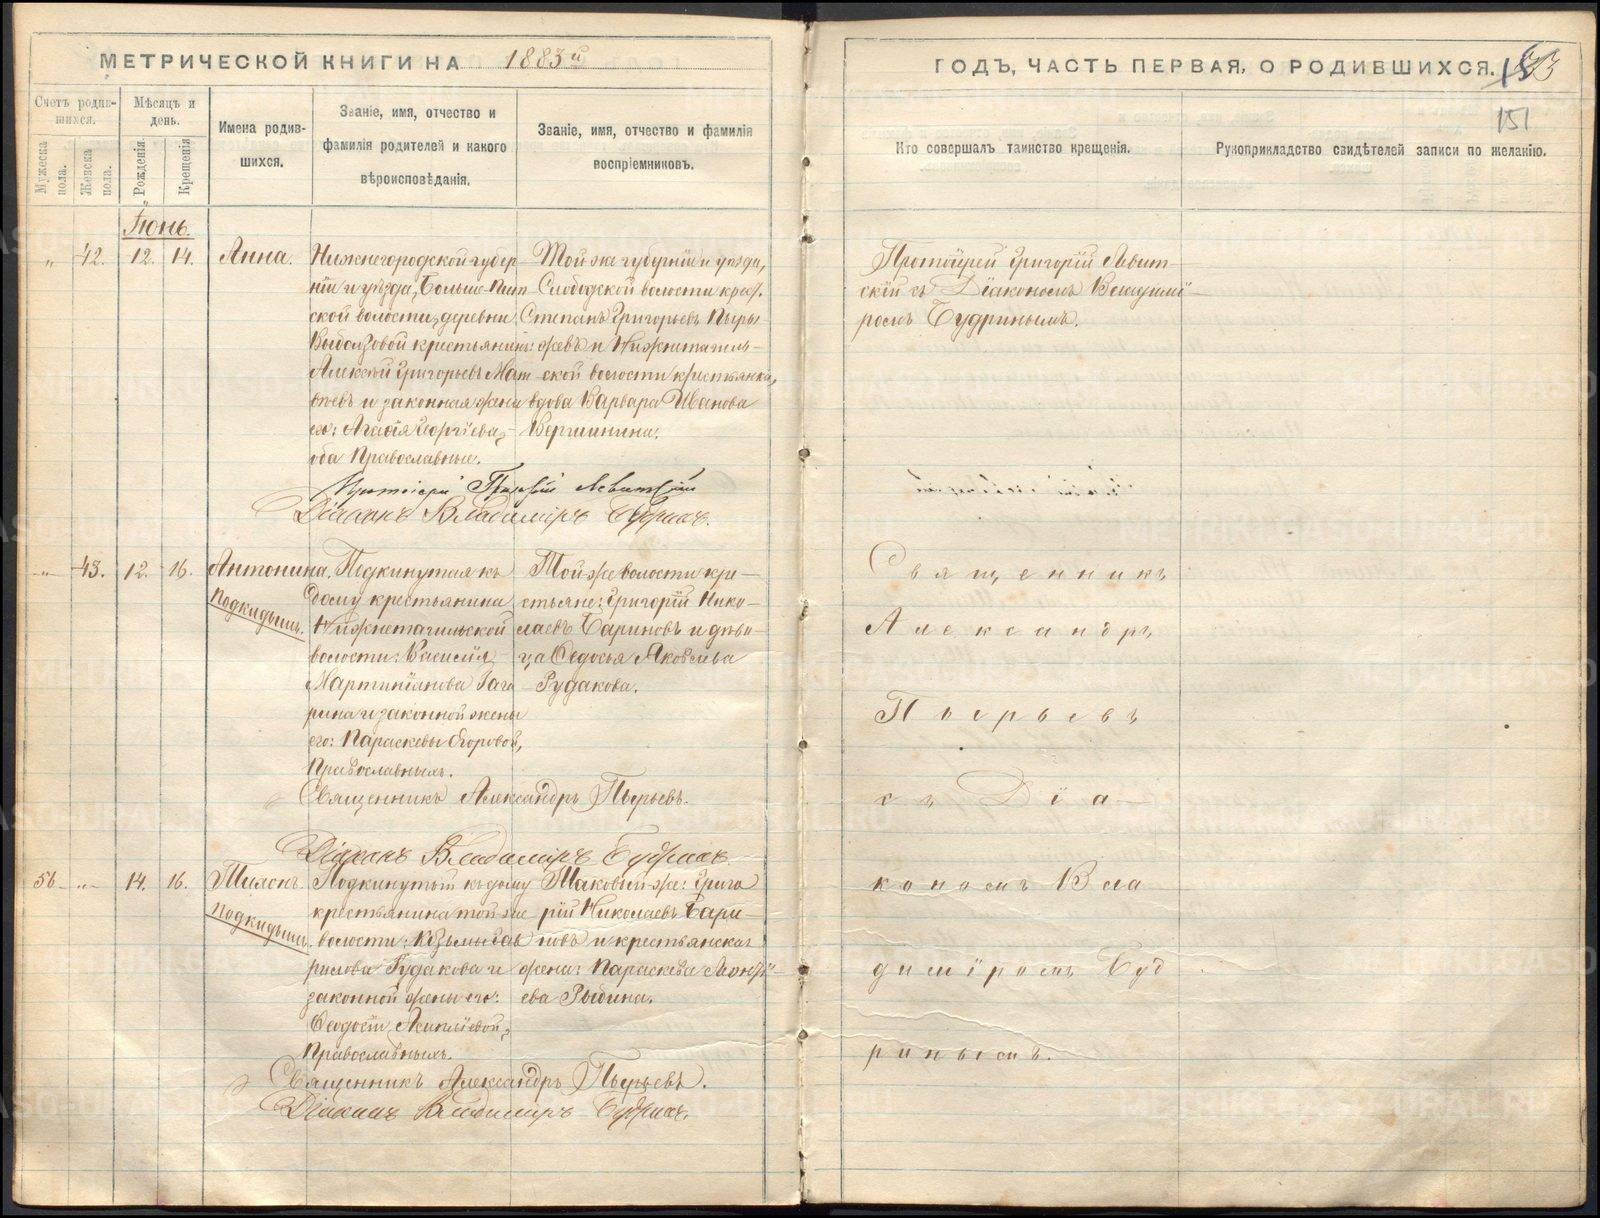 МЕТРИЧЕСКОЙ КНИГИ НА 1883й
ГОДЪ, ЧАСТЬ ПЕРВАЯ, О РОДИВШИХСЯ.
151
Счетъ родив-
шихся.
Мужеска
пола.
Женска
пола.
Мѣсяцъ и
день.
Рожденія.
Крещенія
Имена родив-
шихся.
Званіе, имя, отчество и
фамилія родителей и какого
вѣроисповѣданія.
Званіе, имя, отчество и фамилія
воспріемниковъ.
Кто совершалъ таинство крещенія.
Рукоприкладство свидѣтелей записи по желанію.
Іюнь.
" 42. 12. 14. Анна.
Нижнегородской губер-
ніи и уѣзда, Больше-Пит-
ской волости, деревни
крестьянинъ:
Алексѣй Григорьевъ Мат-
вѣевъ и законная жена
его: Агафія Георгіева,
оба Православные.
Той же губерніи и уѣзда,
Слободской волости крест.
Степанъ Григорьевъ Пыры-
жевъ и Нижнетагиль-
ской волости крестьянка,
вдова Варвара Иванова
Вершинина.
Протоіерей Григорій Левит-
скій съ Діакономъ Владимі-
ромъ Будринымъ.
Протоіерей Григорій Левитскій
Діаконъ Владиміръ Будринъ.
" 43. 12. 16. Антонина.
Подкидышъ.
Подкинутая къ
дому крестьянина
Нижнетагильской
волости: Василія
Мартиніанова Гага-
рина и законной жены
его: Параскевы Егоровой,
Православныхъ.
Той же волости кре-
стьяне: Григорій Нико-
лаевъ Бариновъ и дѣви-
ца Ѳедосья Яковлева
Рудакова.
Священникъ
Александръ
Пырьевъ
съ Діа-
кономъ Вла-
диміромъ Буд-
ринымъ.
Священникъ Александръ Пырьевъ.
Діаконъ Владиміръ Будринъ.
56. " 14. 16. Тихонъ.
Подкидышъ.
Подкинутый къ дому
крестьянина той же
волости: Козьмы
Рудакова и
законной жены его:
Ѳеодосіи Асиплѣевой,
Православныхъ.
Таковый же: Григо-
рій Николаевъ Бари-
новъ и крестьянская
жена: Параскева Леонтѣ-
ева Рыбина.
Священникъ Александръ Пырьевъ.
Діаконъ Владиміръ Будринъ.